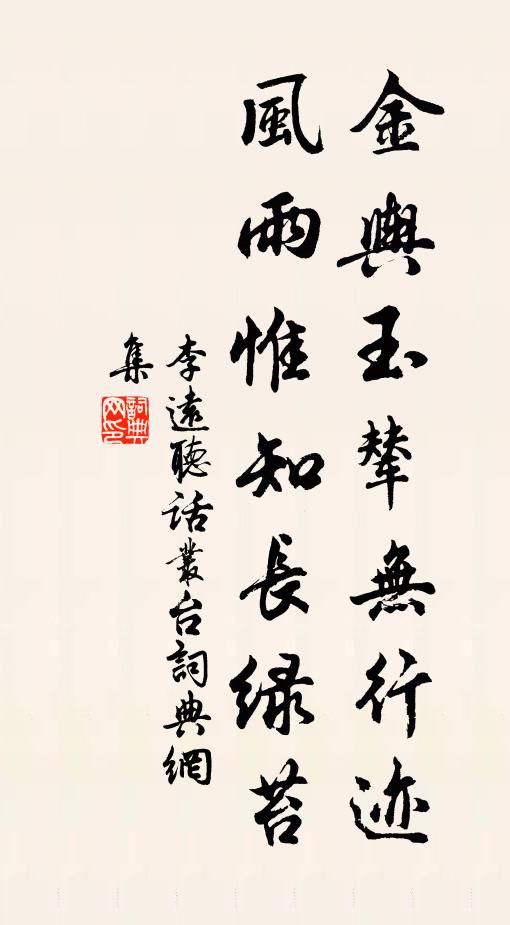 金輿玉輦無行迹
風雨惟知長绿苔
李遠聽話叢台詞典網
集
詞典
网印